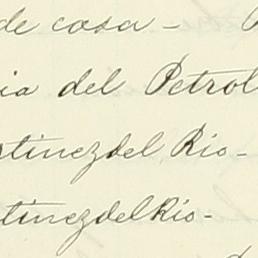 de casa -
ia del Petrol
rtinez del Rio -
tinez del Rio -